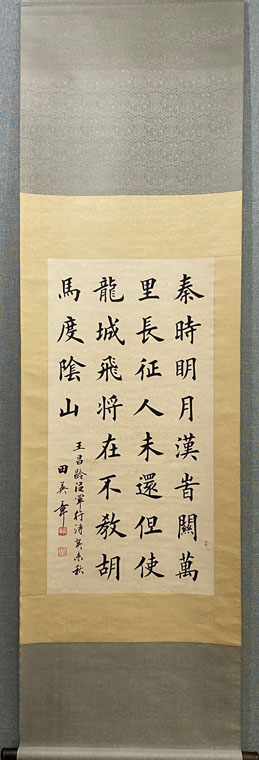 秦時明月漢時關萬
里長征人未還但使
龍城飛将在不教胡
馬度陰山
王昌齡從軍行詩癸未秋
田英章